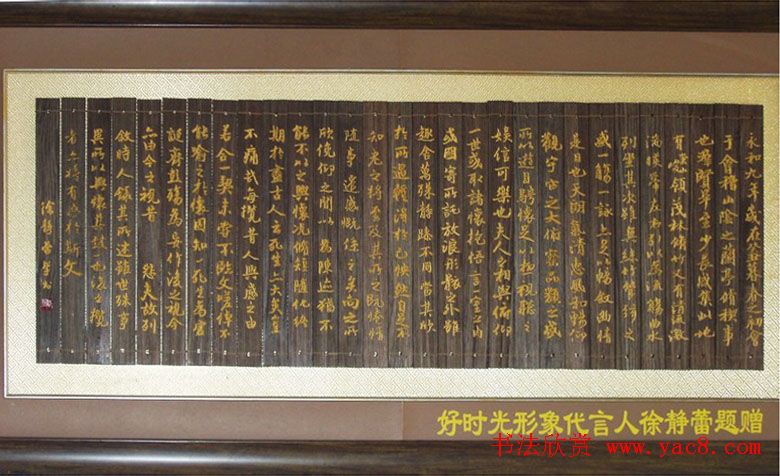 永和九年歲在癸丑暮春之初會
于會稽山陰之蘭亭脩稧事
也羣賢畢至少長咸集此地
有崇山峻領茂林脩竹又有清流激
湍暎帶左右引以為流觴曲水
列坐其次雖無絲竹管弦之
盛一觴一詠亦足以暢敘幽情
是日也天朗氣清惠風和暢仰
觀宇宙之大俯察品類之盛
所以遊目騁懷足以極視聽之
娛信可樂也夫人之相與俯仰
一世或取諸懷抱悟言一室之內
或因寄所託放浪形骸之外雖
趣舍萬殊靜躁不同當其欣
於所遇暫得於己快然自足不
知老之將至及其所之既惓情
隨事遷感慨係之矣向之所
欣俛仰之間以為陳迹猶不
能不以之興懷況脩短隨化終
期於盡古人云死生亦大矣豈
不痛哉每攬昔人興感之由
若合一契未嘗不臨文嗟悼不
能喻之於懷固知一死生為虛
誕齊彭殤為妄作後之視今
亦由今之視昔 悲夫故列
敘時人錄其所述雖世殊事
異所以興懷其致一也後之攬
者亦將有感於斯文
徐靜蕾
好时光形象代言人徐静蕾题赠
书法欣赏 www.yac8.com